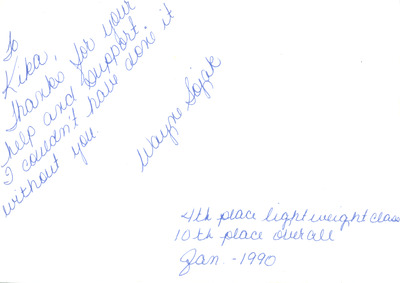 To
Kika,
Thanks for your
help and support.
I couldn't have done it
without you.
Wayne Sojak
4th place lightweight class
10th place overall
Jan. - 1990